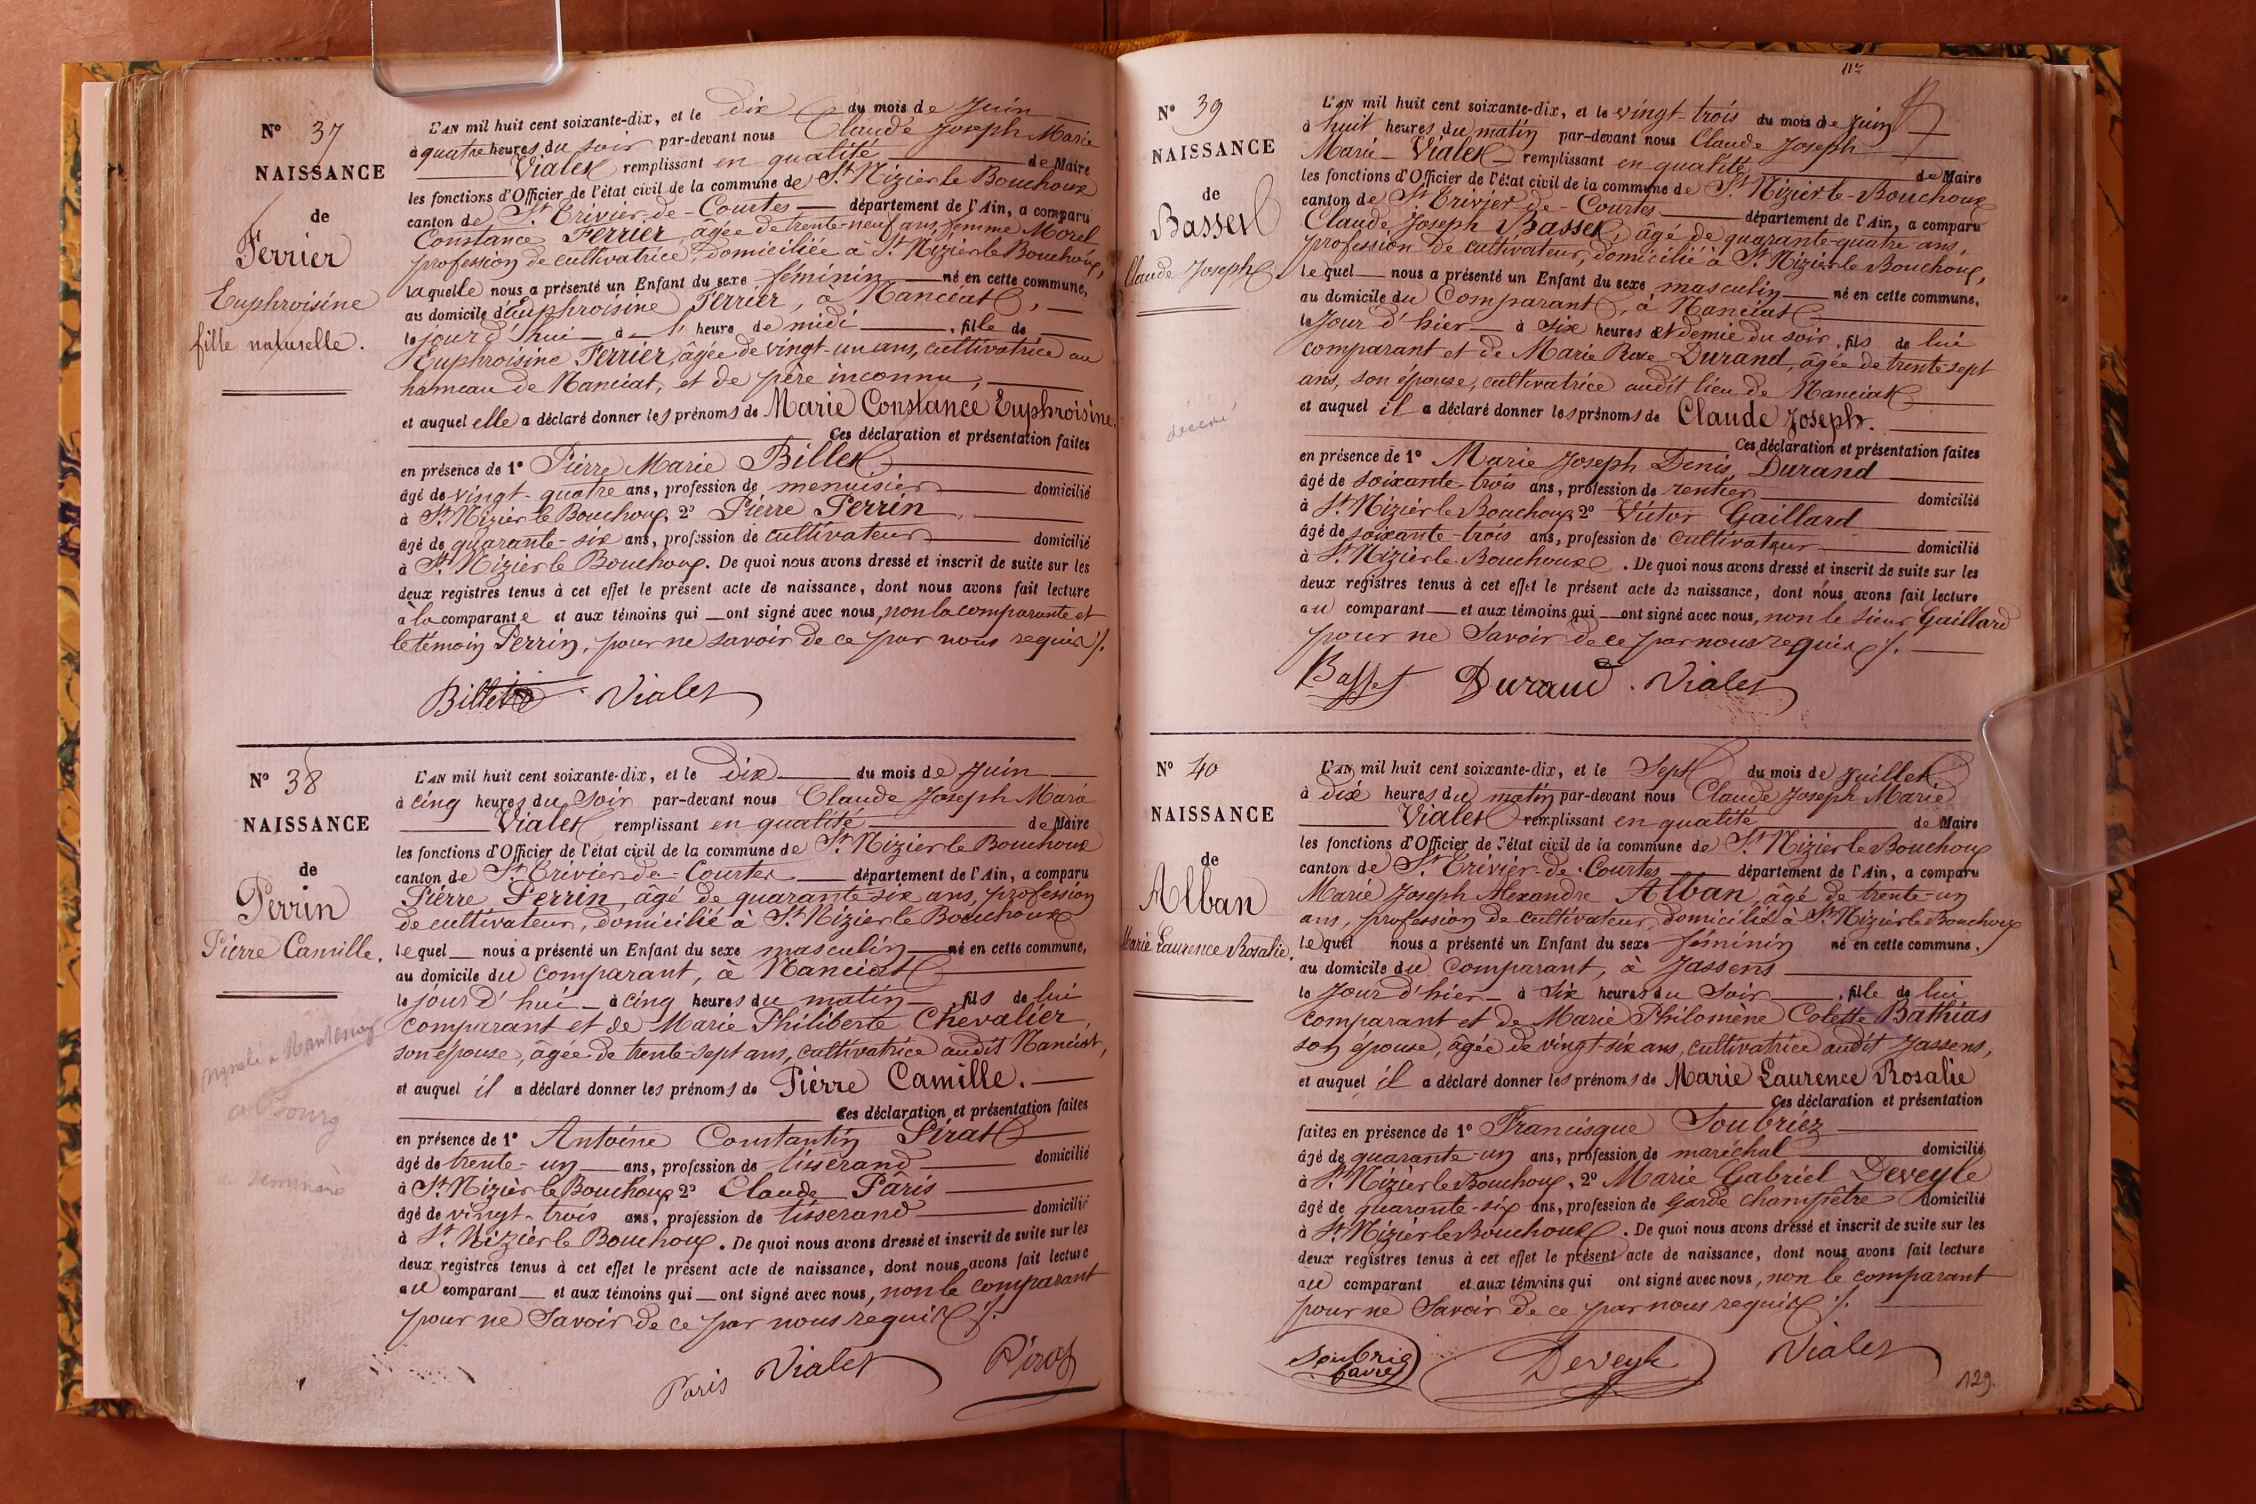 N° 37
NAISSANCE
de
Ferrier
Euphroisine
fille naturelle.
L'AN mil huit cent soixante-dix, et le dix du mois de Juin
à quatre heures du soir par-devant nous Claude Joseph Marie
Vialet remplissant en qualité de Maire
les fonctions d'Officier de l'état civil de la commune de St Nizier le Bouchoux
canton de St Trivier-de-Courtes département de l'Ain, a comparu
Constance Ferrier, âgée de trente-neuf ans, femme Morel
profession de cultivatrice, domiciliée à St Nizier le Bouchoux,
laquelle nous a présenté un Enfant du sexe féminin né en cette commune,
au domicile d'Euphroisine Ferrier, à Nanciat,
le jour d'hui à l' heure de midi, fille de
Euphroisine Ferrier, âgée de vingt-un ans, cultivatrice au
hameau de Nanciat, et de père inconnu,
et auquel elle a déclaré donner les prénoms de Marie Constance Euphroisine.
Ces déclaration et présentation faites
en présence de 1° Pierre Marie Billet
âgé de vingt-quatre ans, profession de menuisier domicilié
à St Nizier le Bouchoux, 2° Pierre Perrin
âgé de quarante-six ans, profession de cultivateur domicilié
à St Nizier le Bouchoux. De quoi nous avons dressé et inscrit de suite sur les
deux registres tenus à cet effet le présent acte de naissance, dont nous avons fait lecture
à la comparante et aux témoins qui ont signé avec nous, non la comparante et
le témoin Perrin, pour ne savoir de ce par nous requis ./.
Billet Vialet
N° 38
NAISSANCE
de
Perrin
Pierre Camille.
à Bourg
L'AN mil huit cent soixante-dix, et le dix du mois de Juin
à cinq heures du soir par-devant nous Claude Joseph Marie
Vialet remplissant en qualité de Maire
les fonctions d'Officier de l'état civil de la commune de St Nizier le Bouchoux
canton de St Trivier-de-Courtes département de l'Ain, a comparu
Pierre Perrin, âgé de quarante-six ans, profession
de cultivateur, domicilié à St Nizier le Bouchoux
lequel nous a présenté un Enfant du sexe masculin né en cette commune,
au domicile du comparant, à Nanciat
le jour d'hui à cinq heures du matin, fils de lui
comparant et de Marie Philiberte Chevalier,
son épouse, âgée de trente-sept ans, cultivatrice audit Nanciat,
et auquel il a déclaré donner les prénoms de Pierre Camille.
Ces déclaration et présentation faites
en présence de 1° Antoine Constantin Pirat
âgé de trente-un ans, profession de tisserand domicilié
à St Nizier le Bouchoux 2° Claude Paris
âgé de vingt-trois ans, profession de tisserand domicilié
à St Nizier le Bouchoux. De quoi nous avons dressé et inscrit de suite sur les
deux registres tenus à cet effet le présent acte de naissance, dont nous avons fait lecture
au comparant et aux témoins qui ont signé avec nous, non le comparant
pour ne savoir de ce par nous requis ./.
Paris Vialet Pirat
N° 39
NAISSANCE
de
Basset
Claude Joseph.
décédé
L'AN mil huit cent soixante-dix, et le vingt-trois du mois de Juin
à huit heures du matin par-devant nous Claude Joseph
Marie Vialet remplissant en qualité de Maire
les fonctions d'Officier de l'état civil de la commune de St Nizier le Bouchoux
canton de St Trivier-de-Courtes département de l'Ain, a comparu
Claude Joseph Basset, âgé de quarante-quatre ans,
profession de cultivateur, domicilié à St Nizier le Bouchoux,
lequel nous a présenté un Enfant du sexe masculin né en cette commune,
au domicile du Comparant, à Nanciat
le Jour d'hier à six heures et demie du soir, fils de lui
comparant et de Marie Rose Durand, âgée de trente-sept
ans, son épouse, cultivatrice audit lieu de Nanciat
et auquel il a déclaré donner les prénoms de Claude Joseph.
Ces déclaration et présentation faites
en présence de 1° Marie Joseph Denis Durand
âgé de soixante-trois ans, profession de rentier domicilié
à St Nizier le Bouchoux 2° Victor Gaillard
âgé de soixante-trois ans, profession de cultivateur domicilié
à St Nizier le Bouchoux. De quoi nous avons dressé et inscrit de suite sur les
deux registres tenus à cet effet le présent acte de naissance, dont nous avons fait lecture
au comparant et aux témoins qui ont signé avec nous, non le sieur Gaillard
pour ne savoir de ce par nous requis ./.
Basset Durand Vialet
N° 40
NAISSANCE
de
Alban
Marie Laurence Rosalie.
L'AN mil huit cent soixante-dix, et le Sept du mois de Juillet
à dix heures du matin par-devant nous Claude Joseph Marie
Vialet remplissant en qualité de Maire
les fonctions d'Officier de l'état civil de la commune de St Nizier le Bouchoux
canton de St Trivier-de-Courtes département de l'Ain, a comparu
Marie Joseph Alexandre Alban, âgé de trente-un
ans, profession de cultivateur, domicilié à St Nizier le Bouchoux
lequel nous a présenté un Enfant du sexe féminin né en cette commune,
au domicile du Comparant, à Jassens
le Jour d'hier à six heures du Soir, fille de lui
comparant et de Marie Philomène Colette Bathias
son épouse, âgée de vingt-six ans, cultivatrice audit Jassens,
et auquel il a déclaré donner les prénoms de Marie Laurence Rosalie
Ces déclaration et présentation
faites en présence de 1° Francisque Soubriez
âgé de quarante-un ans, profession de maréchal domicilié
à St Nizier le Bouchoux, 2° Marie Gabriel Deveyle
âgé de quarante-six ans, profession de Garde champêtre domicilié
à St Nizier le Bouchoux. De quoi nous avons dressé et inscrit de suite sur les
deux registres tenus à cet effet le présent acte de naissance, dont nous avons fait lecture
au comparant et aux témoins qui ont signé avec nous, non le comparant
pour ne savoir de ce par nous requis ./.
Deveyle Vialet
129.